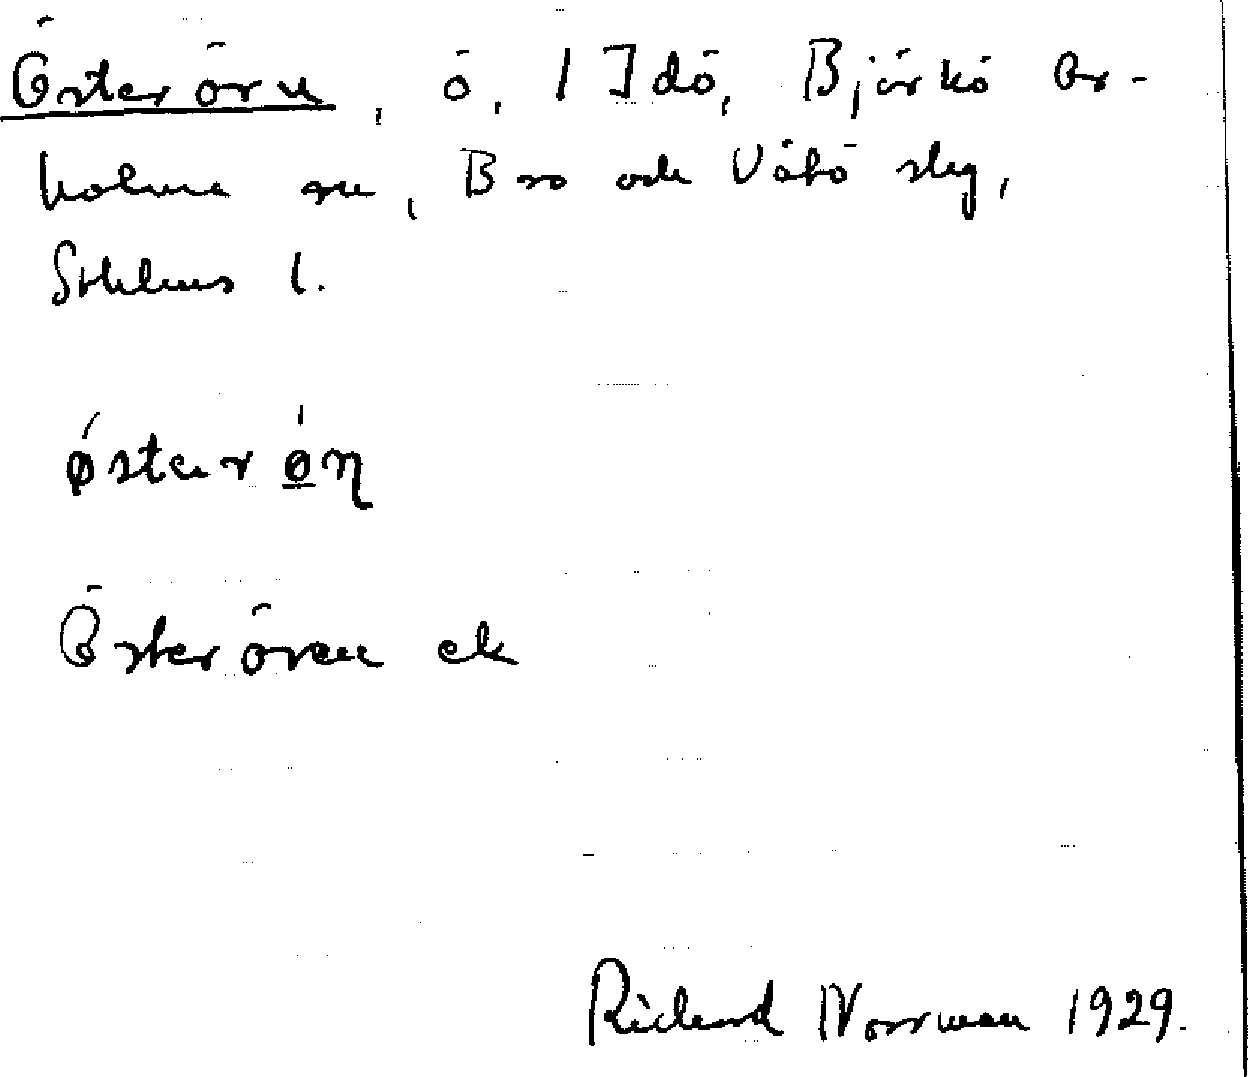 Österörn, ö, 1 Idö, Björkö Ar-
holma sn, Bro och Vätö slg,
Sthlms l.
Österören ek
Richard Norrman 1929.